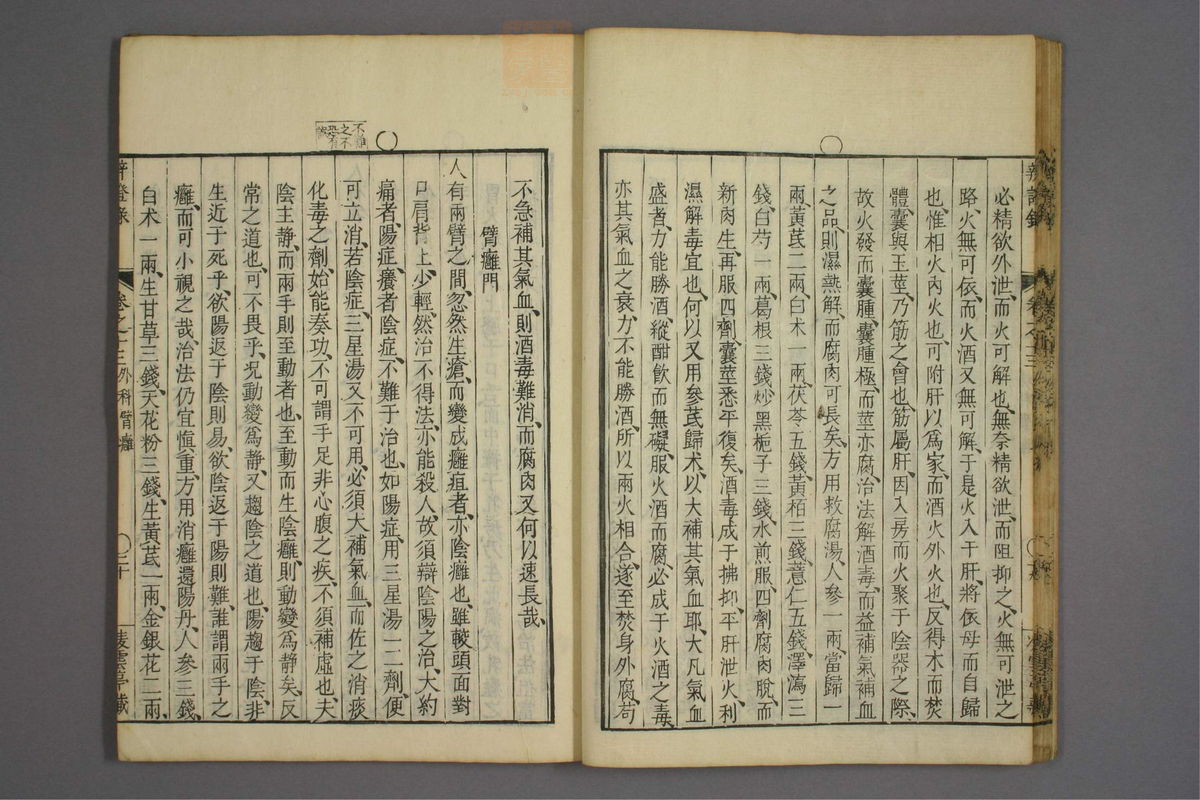 必精欲外泄、而火可解也、無奈精欲泄、而阻抑之、火無可泄之
路、火無可依、而火酒又無可解、于是火入于肝、將依母而自歸
也、惟相火內火也、可附肝以爲家、而酒火外火也、反得木而焚
體、囊與玉莖、乃筋之會也、筋屬肝、因入房而火聚于陰器之際、
故火發而囊腫、囊腫極、而莖亦腐、治法解酒毒、而益補氣補血
之品、則濕熱解、而腐肉可長矣、方用救腐湯、人參一兩、當歸一
兩、黃芪二兩白朮一兩、茯苓五錢、黃栢三錢、薏仁五錢、澤瀉三
錢、白芍一兩、葛根三錢、炒黑梔子三錢、水煎服、四劑腐肉脫、而
新肉生、再服四劑、囊莖悉平復矣、酒毒成于拂抑、平肝泄火、利
濕解毒宜也、何以又用參芪歸朮、以大補其氣血耶、大凡氣血
盛者、力能勝酒、縱酣飲而無礙、服火酒而腐、必成于火酒之毒、
亦其氣血之衰、力不能勝酒、所以兩火相合、遂至焚身外腐、苟
不急補其氣血、則酒毒難消、而腐肉又何以速長哉、
臂癰門
人有兩臂之間、忽然生瘡、而變成癰疽者、亦陰癰也、雖較頭面對
口肩背上、少輕、然治不得法、亦能殺人、故須辯陰陽之治、大約
痛者、陽症、癢者陰症、不難于治也、如陽症、用三星湯一二劑、便
可立消、若陰症、三星湯又不可用、必須大補氣血、而佐之消痰
化毒之劑、始能奏功、不可謂手足非心腹之疾、不須補虛也、夫
陰主靜、而兩手則至動者也、至動而生陰癰、則動變爲靜矣、反
常之道也、可不畏乎、况動變爲靜、又趨陰之道也、陽趨于陰、非
生近于死乎、欲陽返于陰則易、欲陰返于陽則難、誰謂兩手之
癰、而可小視之哉、治法仍宜愼重、方用消癰還陽丹、人參三錢、
白朮一兩、生甘草三錢、天花粉三錢、生黃芪一兩、金銀花二兩、
不難
之不
恐有
辨證錄
卷之十三外科臂癰
三十